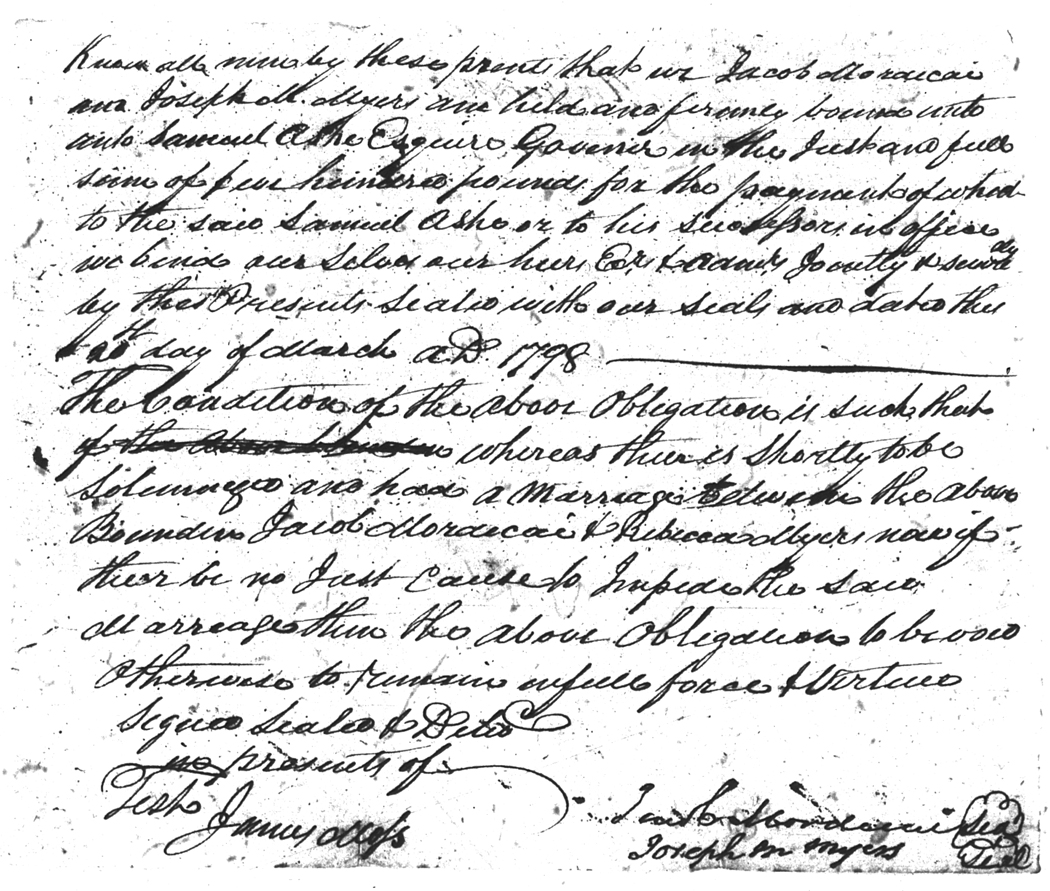 Know all men by these prents that we Jacob Mordecai
and Joseph M. Myers are held and firmley bound unto
unto Samuel Ashe Esquire Govener in the Just and full
sum of five hundred pounds for the payment of which
to the said Samuel Ashe or to his successors in office
we bind our Selves our heirs Exrs & Admrs Jointly & sevrally
by these Presents Sealed with our seals and dated this
day of March AD 1798
The Condition of the above Obligation is such that
if the above bounden whereas there is Shortly to be
Solemnized and had a Marriage Between the above
Bounden Jacob Mordecai & Rebecca Myers now if
ther be no Just Cause to Impede the Said
Marriage then the above Obligation to be void
Otherwise to remain in full force & Vertue
Signed Sealed & Deld
in presents of
Test
Jacob Mordecai Seal
James
Joseph M Myers Seal